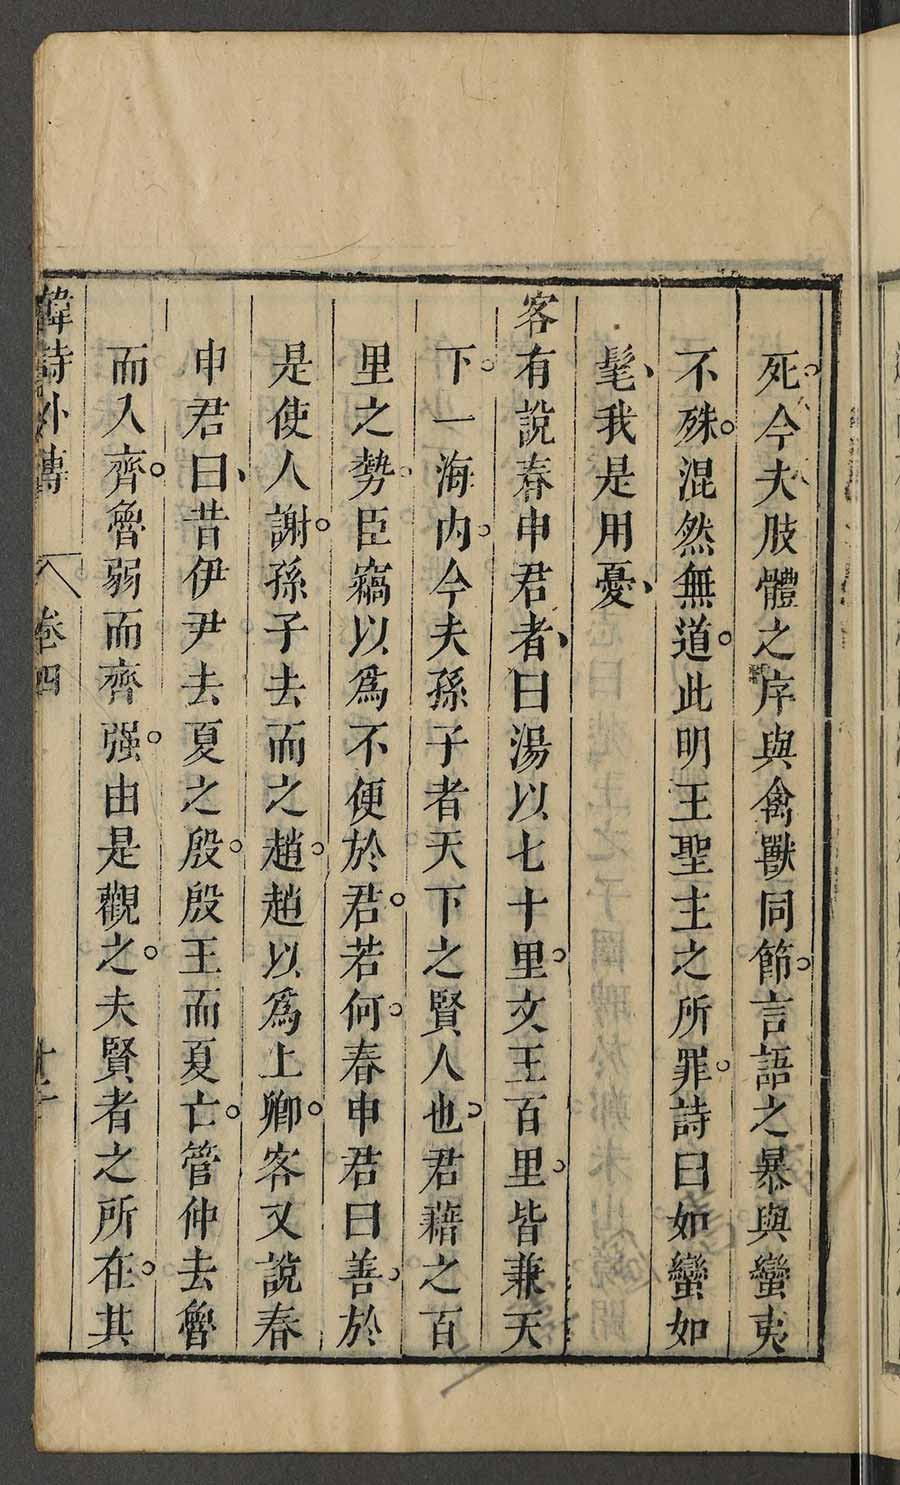 死今夫肢體之序與禽獸同節言語之暴與蠻夷
不殊混然無道此明王聖主之所罪詩曰如蠻如
髦我是用憂
客有說春申君者曰湯以七十里文王百里皆兼天
下一海内今夫孫子者天下之賢人也君藉之百
里之勢臣竊以爲不便於君若何春申君曰善於
是使人謝孫子去而之趙趙以爲上卿客又說春
申君曰昔伊尹去夏之殷殷王而夏亡管仲去魯
而入齊魯弱而齊强由是觀之夫賢者之所在其
韓詩外傳 卷四